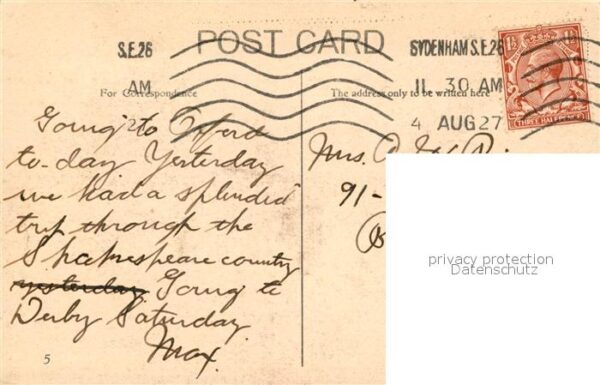 POST CARD
S.E.26
AM
SYDENHAM S.E.26
11 30 AM
4 AUG 27
1½ 1½
THREE HALFPENCE
For Correspondence
The address only to be written here
Going to Oxford
to-day Yesterday
we had a splendid
trip through the
Shakespeare country
yesterday Going to
Derby Saturday
Max.
5
Mrs.
91-
privacy protection
Datenschutz